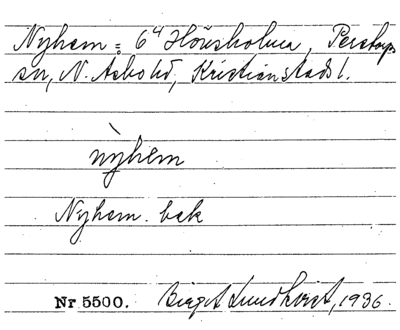 Nyhem = 6⁴ Hönsholma, Perstorps
sn, N. Asbo hd, Kristianstads l.
nỳhem
Nyhem. bek
Nr 5500. Birgit Lundkvist, 1936.